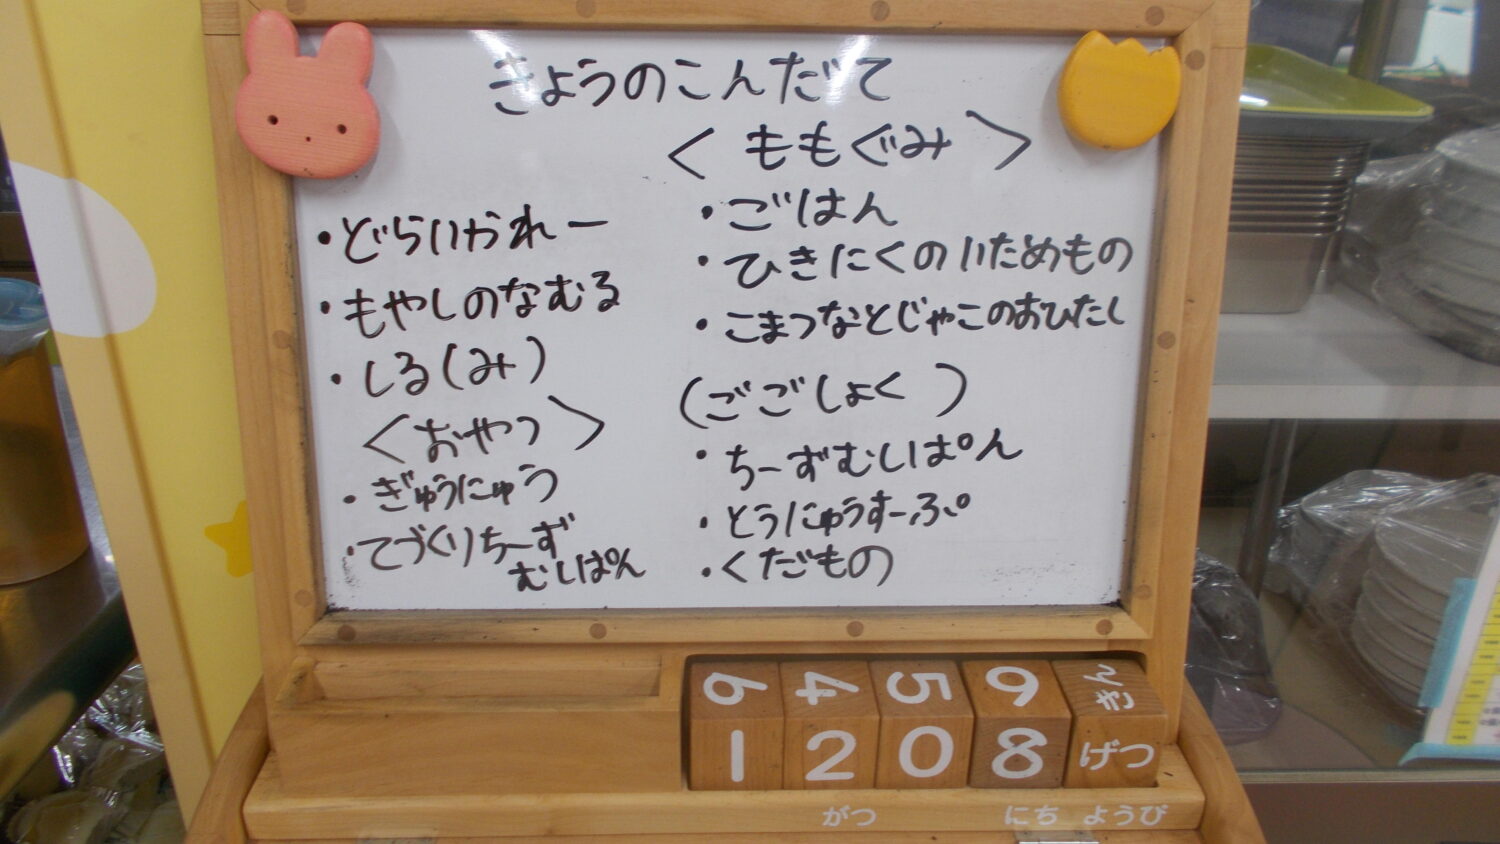 きょうのこんだて
・どらいかれー
・もやしのなむる
・しる(み)
＜おやつ＞
・ぎゅうにゅう
・てづくりちーず
むしぱん
＜ももぐみ＞
・ごはん
・ひきにくのいためもの
・こまつなとじゃこのおひたし
(ごごしょく)
・ちーずむしぱん
・とうにゅうすーぷ
・くだもの
6 4 5 9 きん
1 2 0 8 げつ
がつ にち ようび